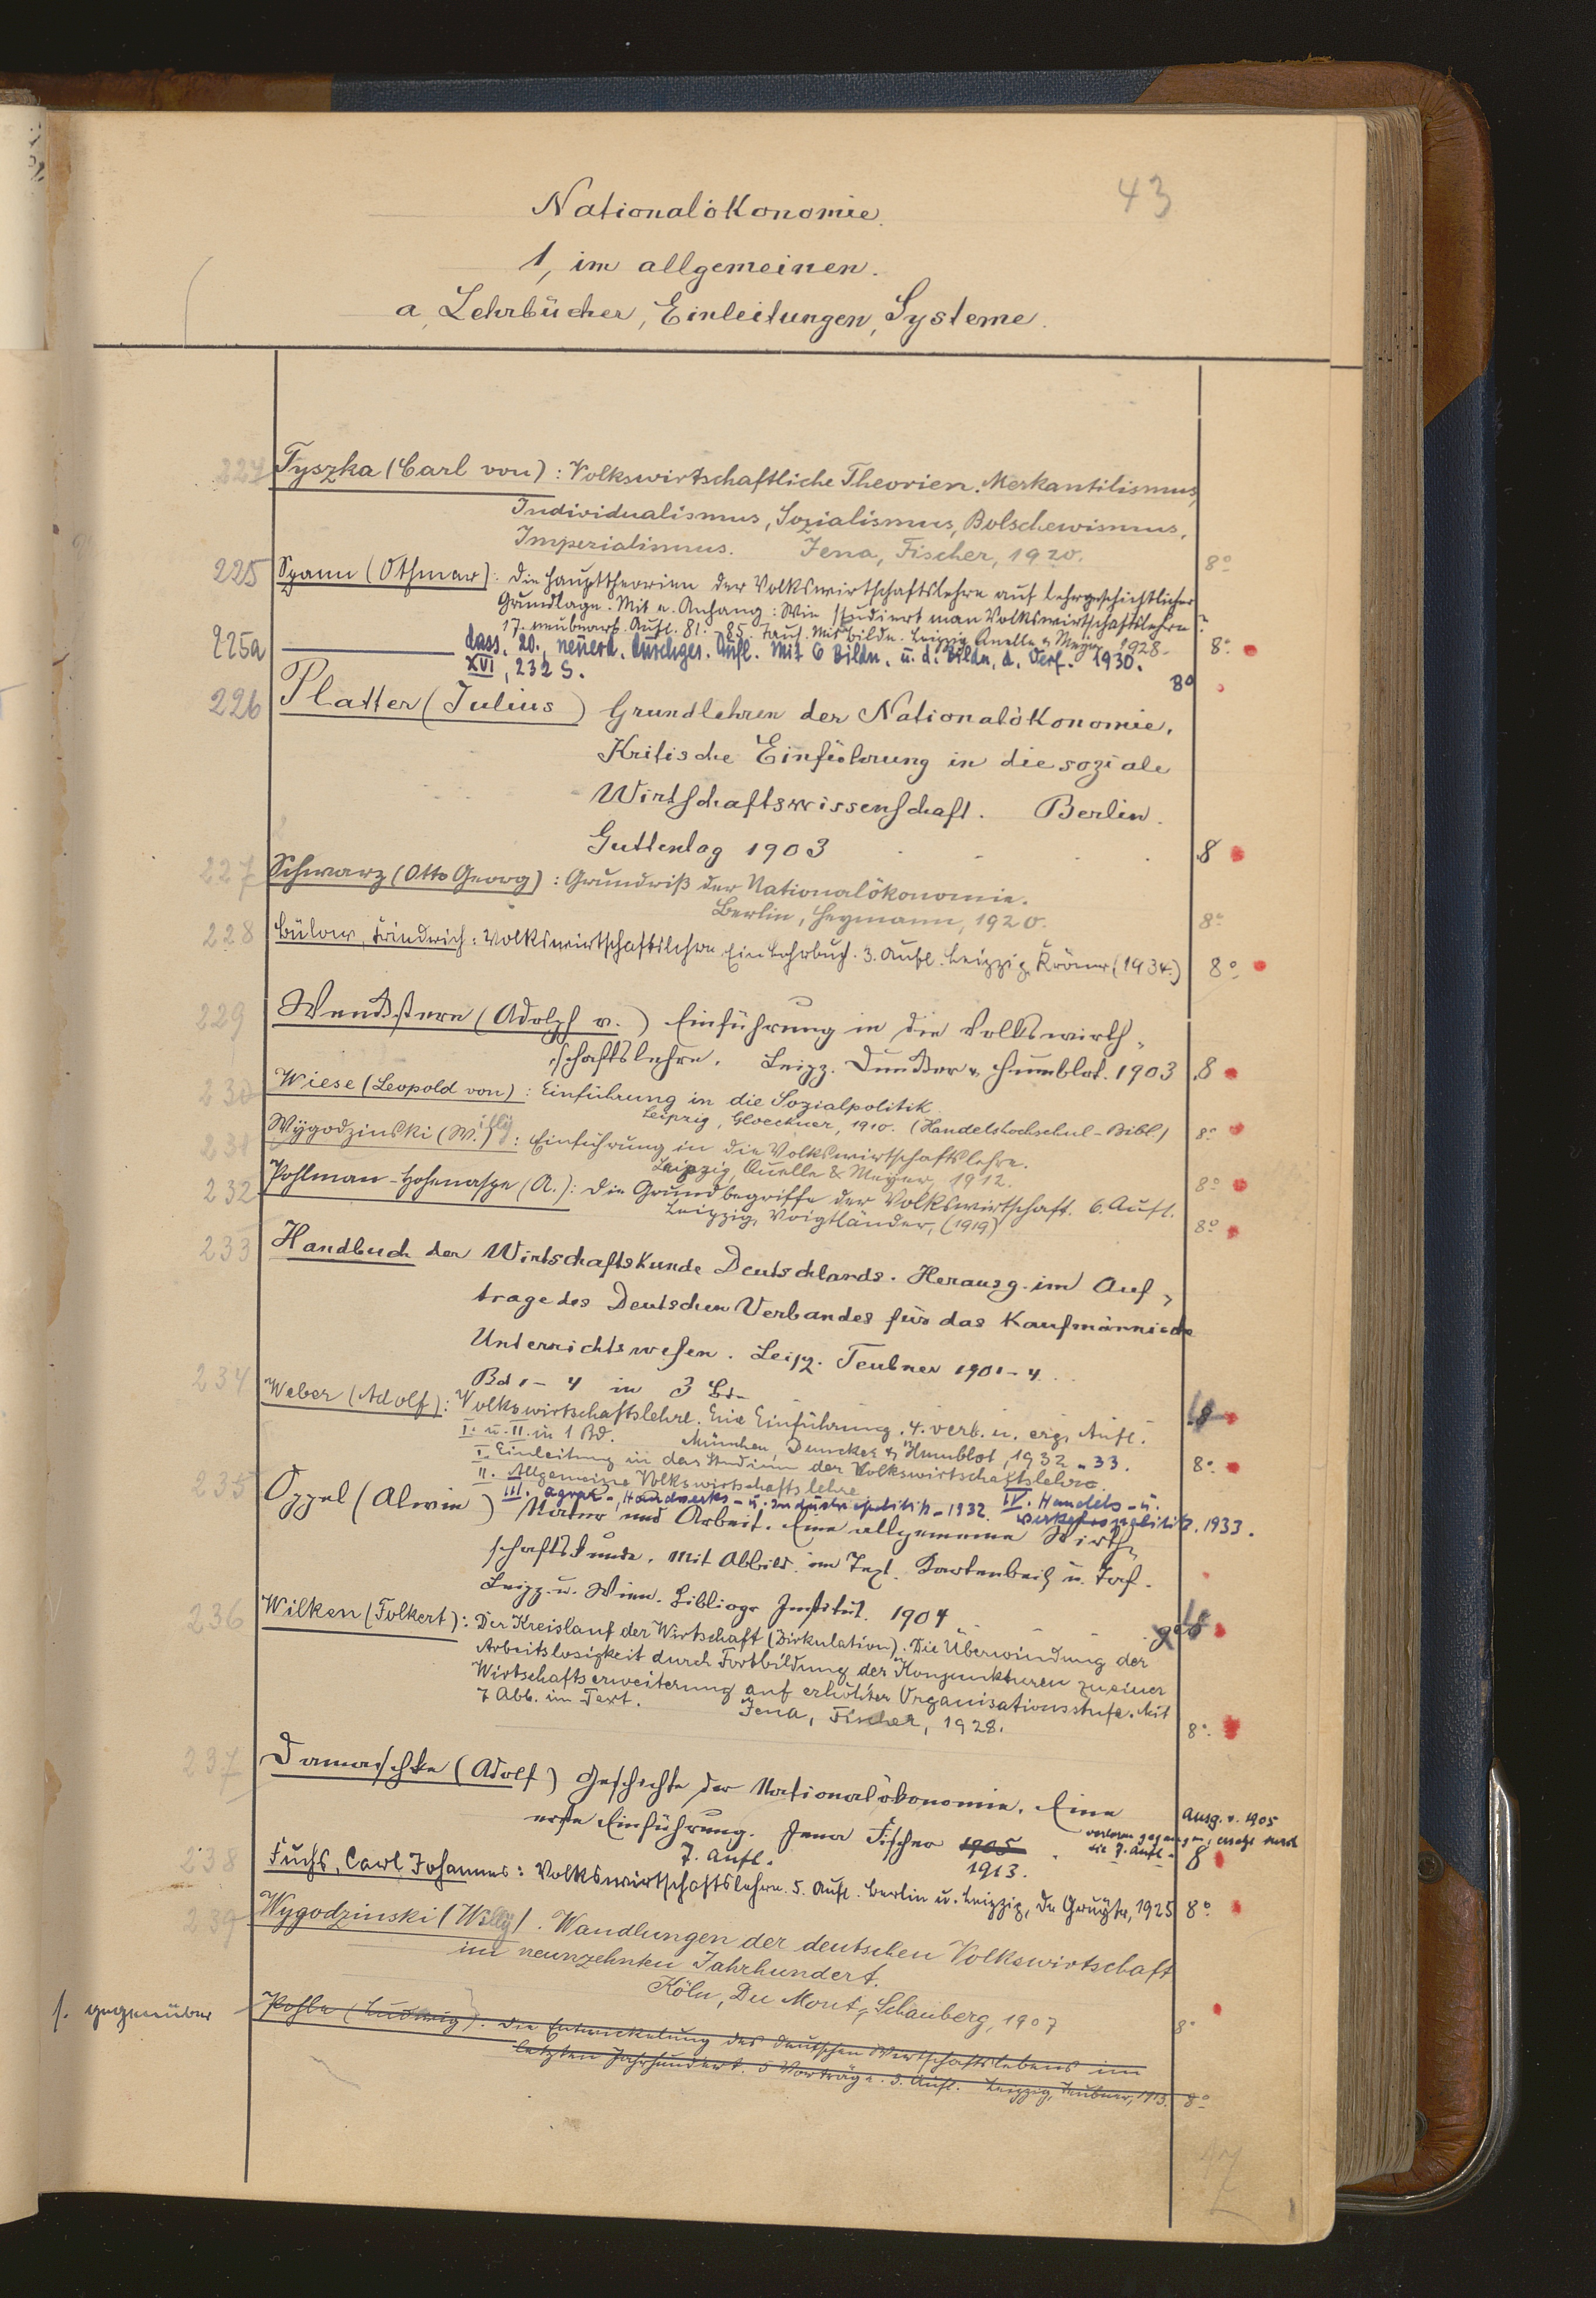 43
Nationalökonomie.
1, im allgemeinen.
a, Lehrbücher, Einleitungen, Systeme.
224 Tyszka (Carl von): Volkswirtschaftliche Theorien. Merkantilismus,
Individualismus, Sozialismus, Bolschewismus,
Imperialismus. Jena, Fischer, 1920. 8°
225 Spann (Othmar): Die Haupttheorien der Volkswirtschaftslehre auf lehrgeschichtlicher
Grundlage. Mit e. Anhang: Wie studiert man Volkswirtschaftslehre?
17. neubearb. Aufl. 81.-85. Taus. Mit Bildn. Leipzig, Quelle & Meyer 1928. 8°
225a dass. 20., neuerd. durchges. Aufl. Mit 6 Bildn. u. d. Bildn. d. Verf. 1930.
XVI, 232 S. 8°
226 Platter (Julius) Grundlehren der Nationalökonomie.
Kritische Einführung in die soziale
Wirtschaftswissenschaft. Berlin.
Guttentag 1903 8
227 Schwarz (Otto Georg): Grundriß der Nationalökonomie.
Berlin, Heymann, 1920. 8°
228 Bülow, Friedrich: Volkswirtschaftslehre Ein Lehrbuch. 3. Aufl. Leipzig, Kröner (1934.) 8°
229 Wenckstern (Adolph v.) Einführung in die Volkswirth-
schaftslehre. Leipz. Duncker u. Humblot. 1903 8
230 Wiese (Leopold von): Einführung in die Sozialpolitik
Leipzig, Gloeckner, 1910. (Handelshochschul-Bibl.) 8°
231 Wygodzinski (W.illy): Einführung in die Volkswirtschaftslehre.
Leipzig, Quelle & Meyer, 1912. 8°
232 Pohlman-Hohenaspe (A.): Die Grundbegriffe der Volkswirtschaft. 6. Aufl.
Leipzig, Voigtländer, (1919) 8°
233 Handbuch der Wirtschaftskunde Deutschlands. Herausg. im Auf-
trage des Deutschen Verbandes für das Kaufmännische
Unterrichtswesen. Leipz. Teubner 1901-4.
Bd 1-4 in 3 Bd.
234 Weber (Adolf): Volkswirtschaftslehre. Eine Einführung. 4. verb. u. erg. Aufl.
I. u. II. in 1 Bd. München, Duncker & Humblot, 1932-33. 8°
I. Einleitung in das Studium der Volkswirtschaftslehre
II. Allgemeine Volkswirtschaftslehre
III. Agrar-, Handwerks- u. Industriepolitik. 1932. IV. Handels- u.
Verkehrspolitik. 1933.
235 Oppel (Alwin) Natur und Arbeit. Eine allgemeine Wirth-
schaftskunde. Mit Abbild. im Text. Kartenbeil. u. Taf.
Leipz. u. Wien. Bibliogr. Institut. 1904
236 Wilken (Folkert): Der Kreislauf der Wirtschaft (Zirkulation). Die Überwindung der
Arbeitslosigkeit durch Fortbildung der Konjunkturen zu einer
Wirtschaftserweiterung auf erhöhter Organisationsstufe. Mit
7 Abb. im Text. Jena, Fischer, 1928. 8°
237 Damaschke (Adolf) Geschichte der Nationalökonomie. Eine
erste Einführung. Jena Fischer 1905
7. Aufl. 1913.
Ausg. v. 1905
verloren gegangen, ersetzt durch
die 7. Aufl. 8
238 Fuchs, Carl Johannes: Volkswirtschaftslehre. 5. Aufl. Berlin u. Leipzig, De Gruyter, 1925 8°
239 Wygodzinski (Willy). Wandlungen der deutschen Volkswirtschaft
im neunzehnten Jahrhundert.
Köln, Du Mont, Schauberg, 1907 8°
s. gegenüber Pohle (Ludwig): Die Entwickelung des deutschen Wirtschaftslebens im
letzten Jahrhundert. 5 Vorträge. 3. Aufl. Leipzig, Teubner, 1913. 8°
17